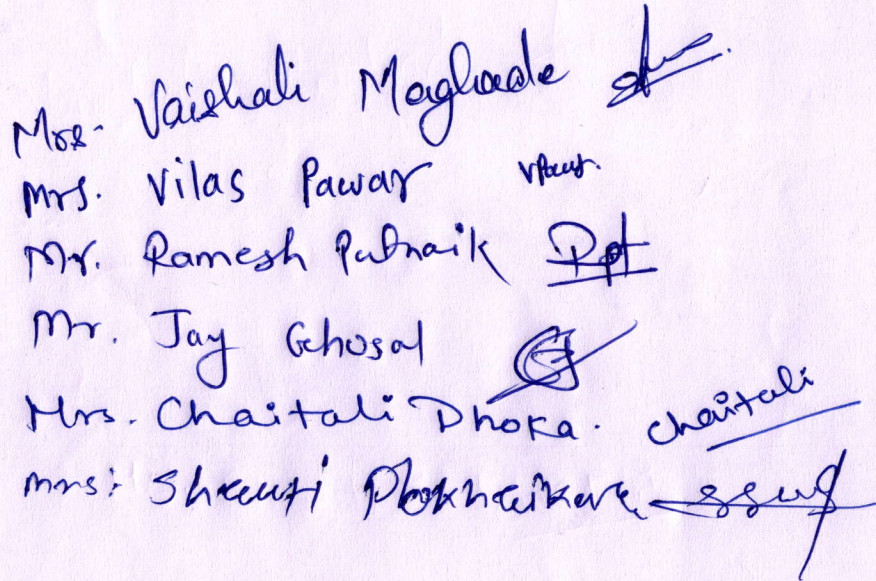 Mrs. Vaishali Maghade
Mrs. Vilas Pawar VPawar.
Mr. Ramesh Patnaik
Mr. Jay Ghosal
Mrs. Chaitali Dhoka. Chaitali
Mrs: Shruti